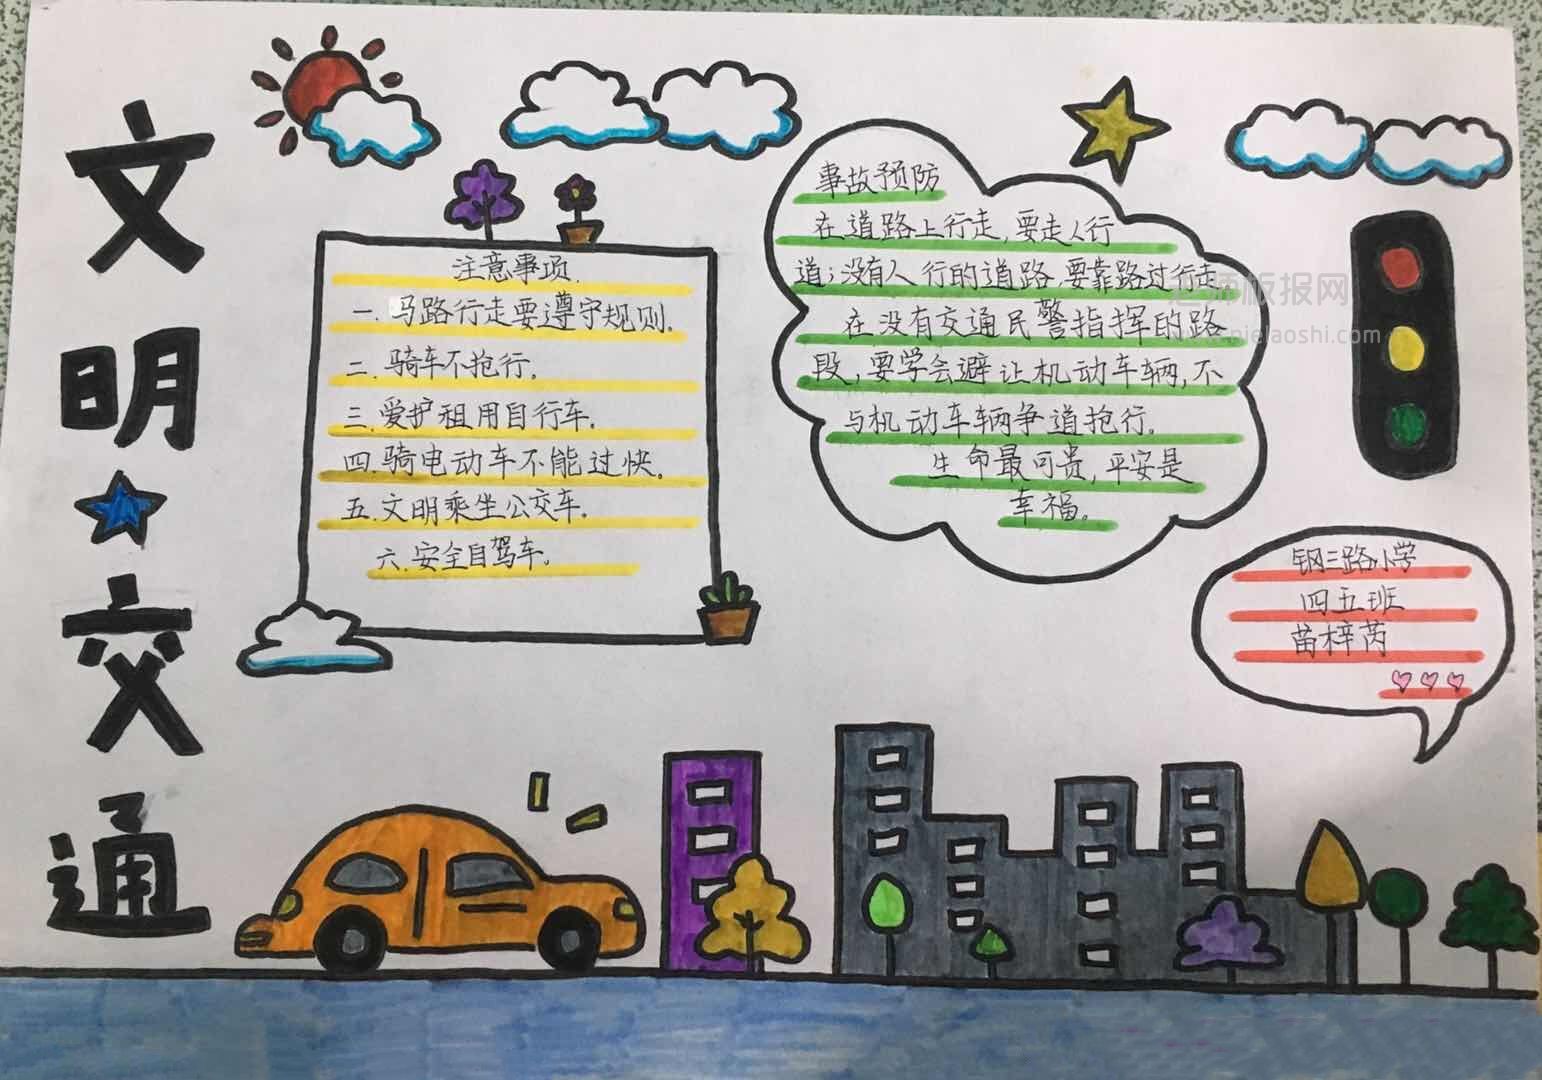 文明★交通
注意事项.
一.马路行走要遵守规则.
二.骑车不抢行.
三.爱护租用自行车.
四.骑电动车不能过快.
五.文明乘坐公交车.
六.安全自驾车.
事故预防
在道路上行走,要走人行
道;没有人行的道路,要靠路过行走
在没有交通民警指挥的路
段,要学会避让机动车辆,不
与机动车辆争道抢行.
生命最可贵,平安是
幸福。
钢三路小学
四五班
苗梓芮
老师板报网